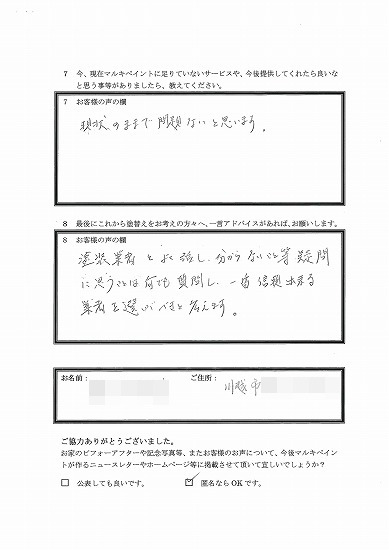 7 今、現在マルキペイントに足りていないサービスや、今後提供してくれたら良いな
と思う事等がありましたら、教えてください。
7 お客様の声の欄
現状のままで問題ないと思います。
8 最後にこれから塗替えをお考えの方々へ、一言アドバイスがあれば、お願いします。
8 お客様の声の欄
塗装業者とよく話し、分からないこと等疑問
に思うことは何でも質問し、一番信頼出来る
業者を選ぶべきと考えます。
お名前: ご住所: 川越市
ご協力ありがとうございました。
お家のビフォーアフターや記念写真等、またお客様のお声について、今後マルキペイント
が作るニュースレターやホームページ等に掲載させて頂いて宜しいでしょうか?
□ 公表しても良いです。 ☑ 匿名ならOKです。